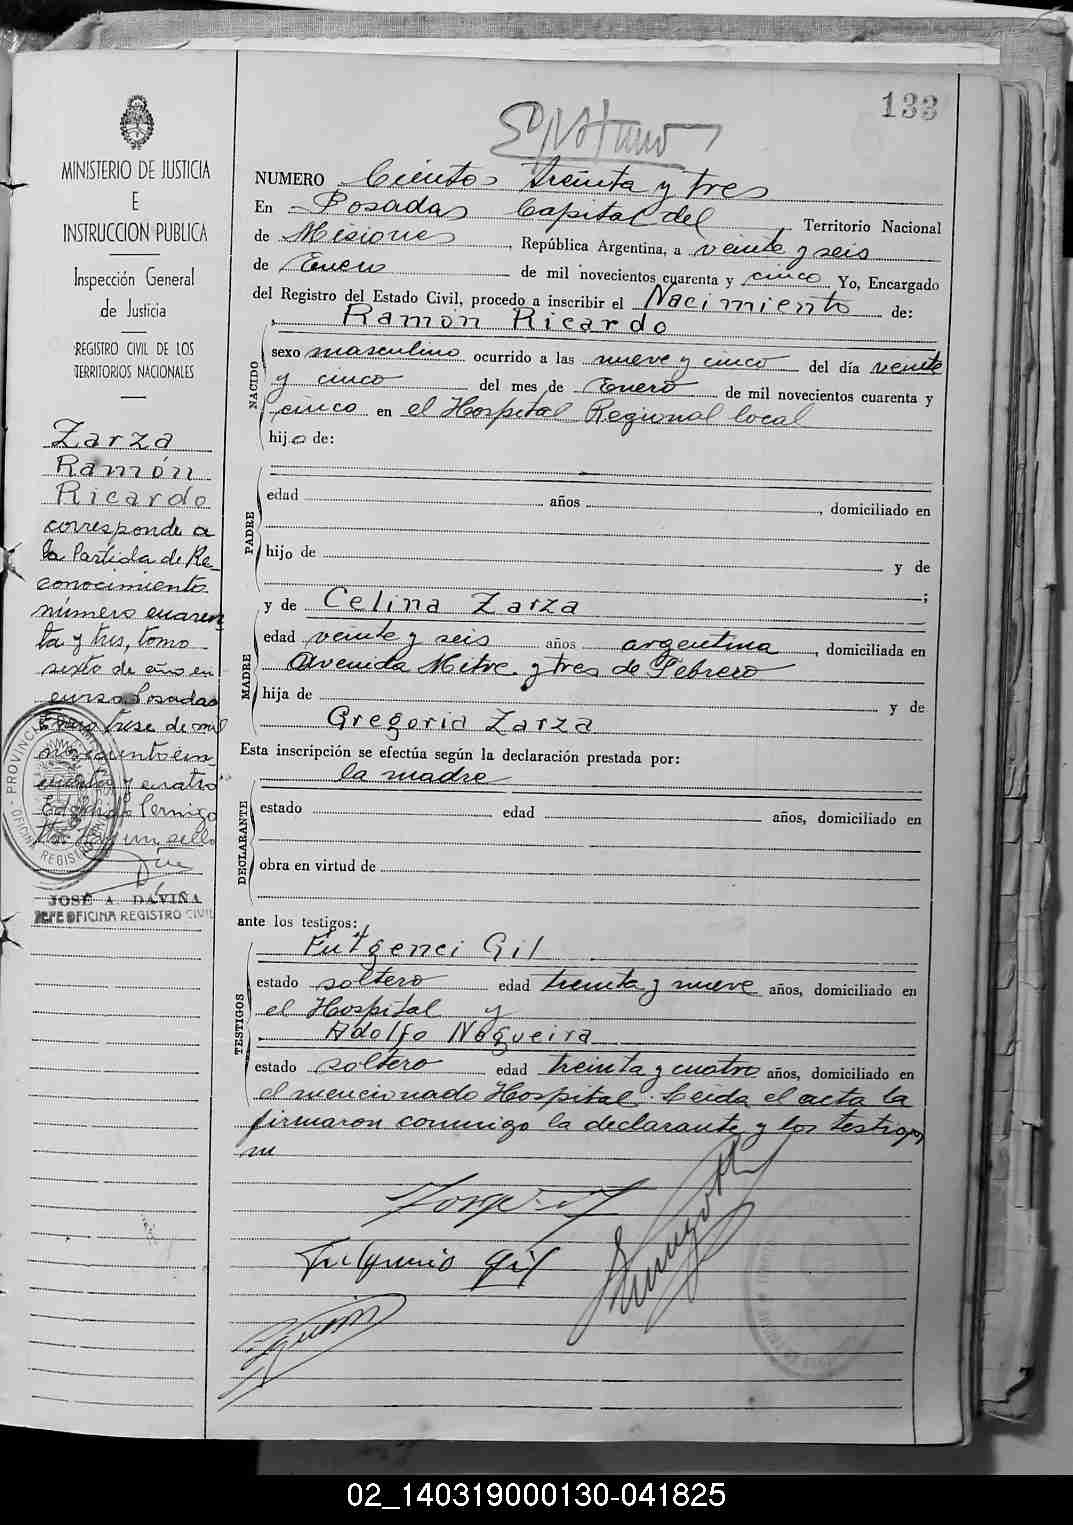 133
NUMERO Ciento treinta y tres
En Posadas Capital del Territorio Nacional
de Misiones, República Argentina, a veinte y seis
de Enero de mil novecientos cuarenta y cinco Yo, Encargado
del Registro del Estado Civil, procedo a inscribir el Nacimiento de:
Ramón Ricardo
NACIDO
sexo masculino ocurrido a las nueve y cinco del día veinte
y cinco del mes de Enero de mil novecientos cuarenta y
cinco en el Hospital Regional local
hijo de:
PADRE
edad años , domiciliado en
hijo de y de
;
y de Celina Zarza
MADRE
edad veinte y seis años argentina, domiciliada en
Avenida Mitre y tres de Febrero
hija de y de
Gregoria Zarza
Esta inscripción se efectúa según la declaración prestada por:
la madre
DECLARANTE
estado edad años, domiciliado en
obra en virtud de
ante los testigos:
Gil
TESTIGOS
estado soltero edad treinta y nueve años, domiciliado en
el Hospital y
Adolfo Nogueira
estado soltero edad treinta y cuatro años, domiciliado en
el mencionado Hospital. Leída el acta la
firmaron conmigo la declarante y los testigos
MINISTERIO DE JUSTICIA
E
INSTRUCCION PUBLICA
Inspección General
de Justicia
REGISTRO CIVIL DE LOS
TERRITORIOS NACIONALES
Zarza
Ramón
Ricardo
corresponde a
la Partida de Re-
conocimiento
número cuaren
ta y tres, tomo
sexto de año en
curso Posadas
Enero trese de mil
novecientos cin
cuenta y cuatro
Hay un sello
JOSÉ A. DAVIÑA
JEFE OFICINA REGISTRO CIVIL
02_140319000130-041825